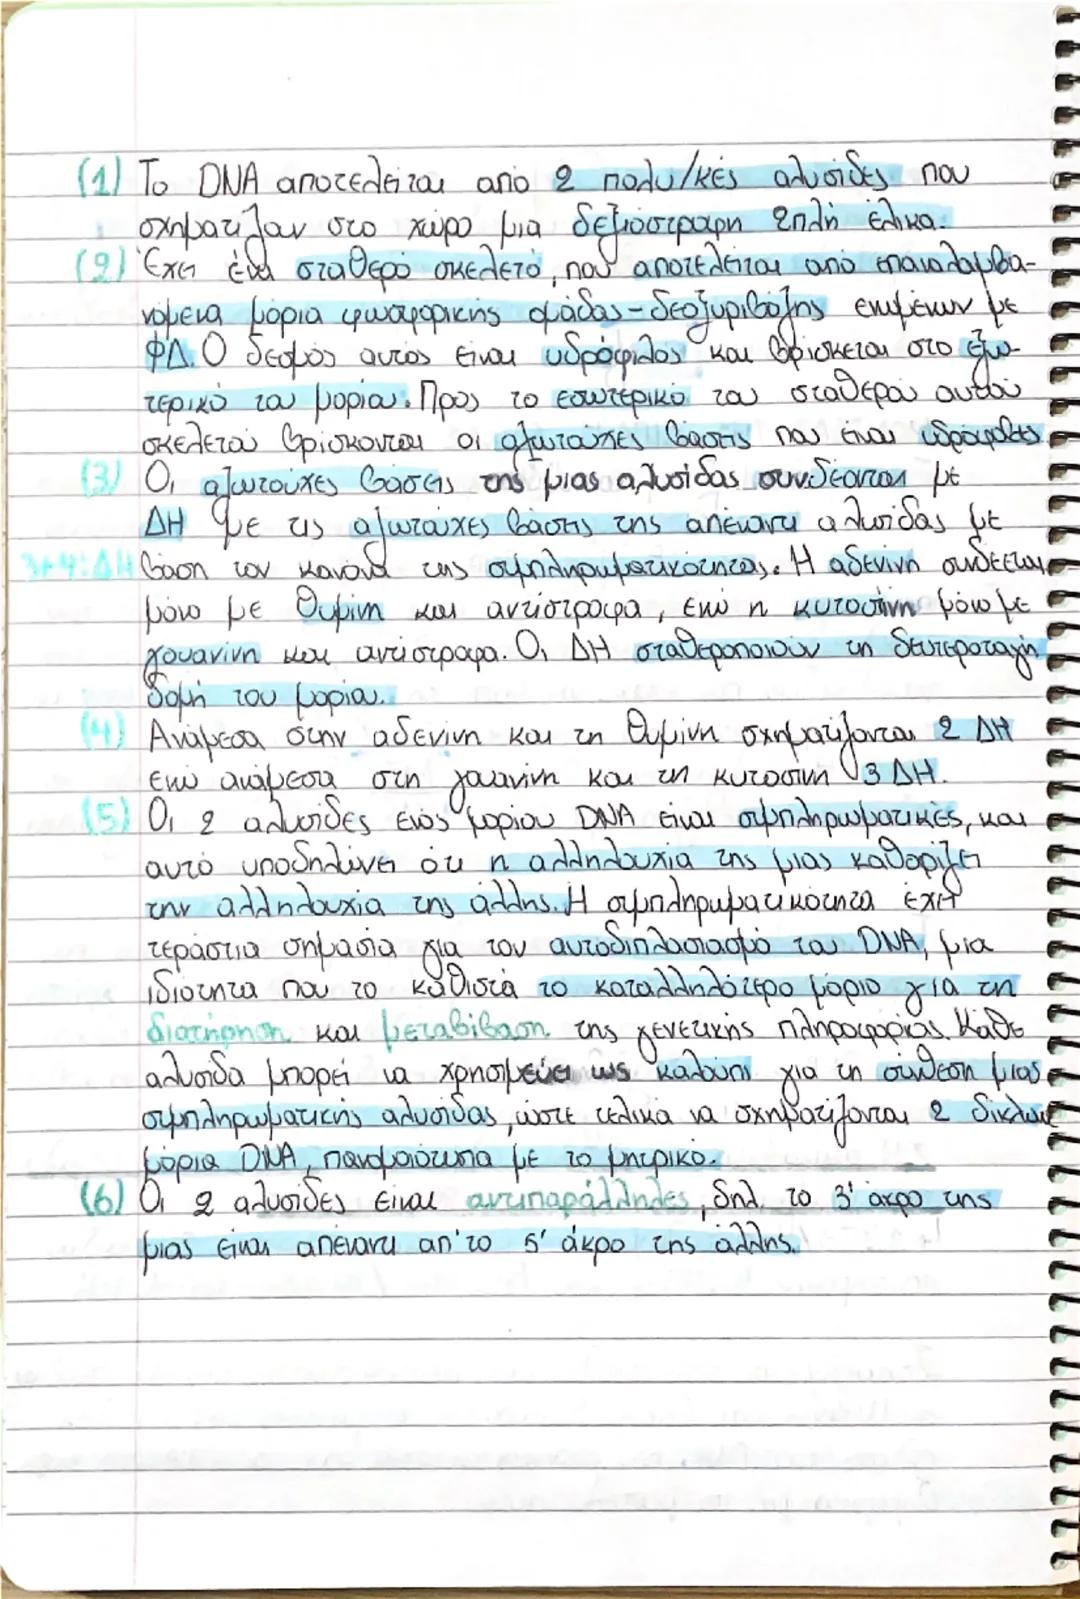 (1) Το DNA αποτελείται από 2 πολυ/κές αλυσίδες που
σχηματίζουν στο χώρο μια δεξιόστροφη 2πλή έλικα.
(2) Έχει ένα σταθερό σκελετό, που αποτελείται από επαναλαμβα-
νόμενα μόρια φωσφορικής ομάδας-δεοξυριβόζης ενωμένων με
ΦΔ. Ο δεσμός αυτός είναι υδρόφιλος και βρίσκεται στο εξω-
τερικό του μορίου. Προς το εσωτερικό του σταθερού αυτού
σκελετού βρίσκονται οι αζωτούχες βάσεις που είναι υδρόφοβες.
(3) Οι αζωτούχες βάσεις της μιας αλυσίδας συνδέονται με
ΔΗ με τις αζωτούχες βάσεις της απέναντι αλυσίδας με
3+4:ΔΗ βάση τον κανόνα της συμπληρωματικότητας. Η αδενίνη συνδέεται
μόνο με θυμίνη και αντίστροφα, ενώ η κυτοσίνη μόνο με
γουανίνη και αντίστροφα. Οι ΔΗ σταθεροποιούν τη δευτεροταγή
δομή του μορίου.
(4) Ανάμεσα στην αδενίνη και τη θυμίνη σχηματίζονται 2 ΔΗ
ενώ ανάμεσα στη γουανίνη και τη κυτοσίνη 3 ΔΗ.
(5) Οι 2 αλυσίδες ενός μορίου DNA είναι συμπληρωματικές, και
αυτό υποδηλώνει ότι η αλληλουχία της μιας καθορίζει
την αλληλουχία της άλλης. Η συμπληρωματικότητα έχει
τεράστια σημασία για τον αυτοδιπλασιασμό του DNA, μια
ιδιότητα που το καθιστά το καταλληλότερο μόριο για τη
διατήρηση και μεταβίβαση της γενετικής πληροφορίας. Κάθε
αλυσίδα μπορεί να χρησιμεύει ως καλούπι για τη σύνθεση μιας
συμπληρωματικής αλυσίδας, ώστε τελικά να σχηματίζονται 2 δίκλωνα
μόρια DNA, πανομοιότυπα με το μητρικό.
(6) Οι 2 αλυσίδες είναι αντιπαράλληλες, δηλ. το 3' άκρο της
μιας είναι απέναντι απ'το 5' άκρο της άλλης.